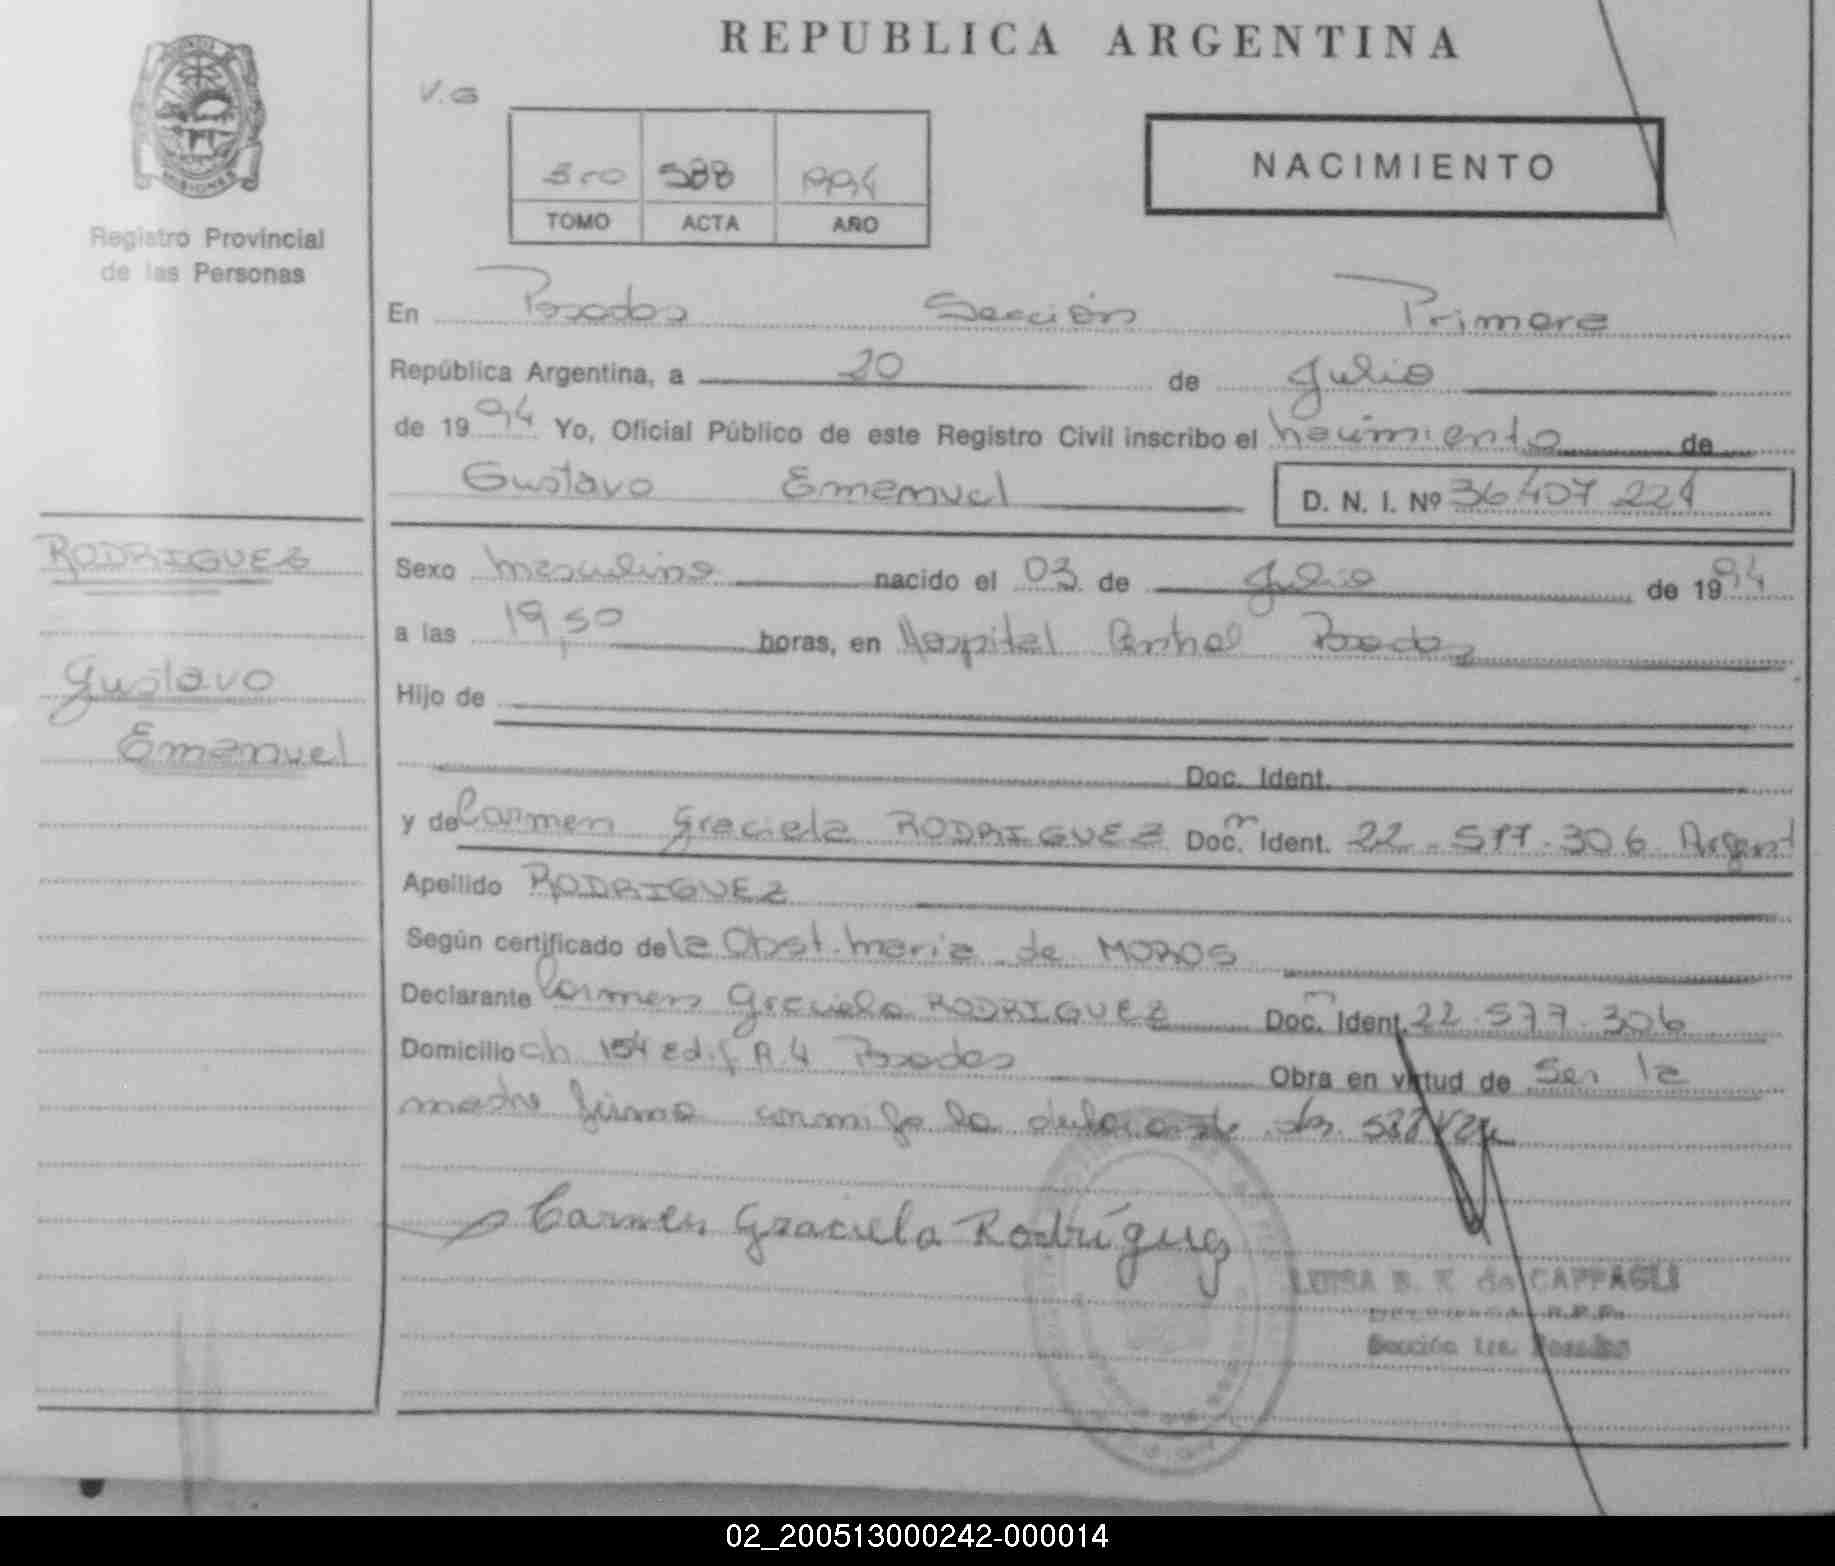 REPUBLICA ARGENTINA
V.G
MISIONES
Registro Provincial
de las Personas
5to 588 1994
TOMO ACTA AÑO
NACIMIENTO
En Posadas Sección Primera
República Argentina, a 20 de Julio
de 1994 Yo, Oficial Público de este Registro Civil inscribo el nacimiento de
Gustavo Emanuel D. N. I. Nº 36 407 224
RODRIGUEZ
Gustavo
Emanuel
Sexo masculino nacido el 03 de Julio de 1994
a las 19,50 horas, en Hospital Central Posadas
Hijo de
Doc. Ident.
y de Carmen Graciela RODRIGUEZ Doc. Ident. 22.577.306 Argent
Apellido RODRIGUEZ
Según certificado de la Obst. Maria de MOROS
Declarante Carmen Graciela RODRIGUEZ Doc. Ident. 22.577.306
Domicilio ch 154 Edif A.4 Posadas Obra en virtud de Ser la
madre firma conmigo la declarante
Carmen Graciela Rodríguez
LUISA B. R. de CAPPAGLI
R.P.P.
Sección 1ra. Posadas
02_200513000242-000014